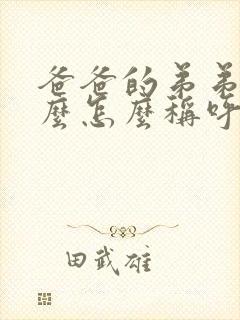 爸爸的弟弟
麼怎麼稱呼
田武雄